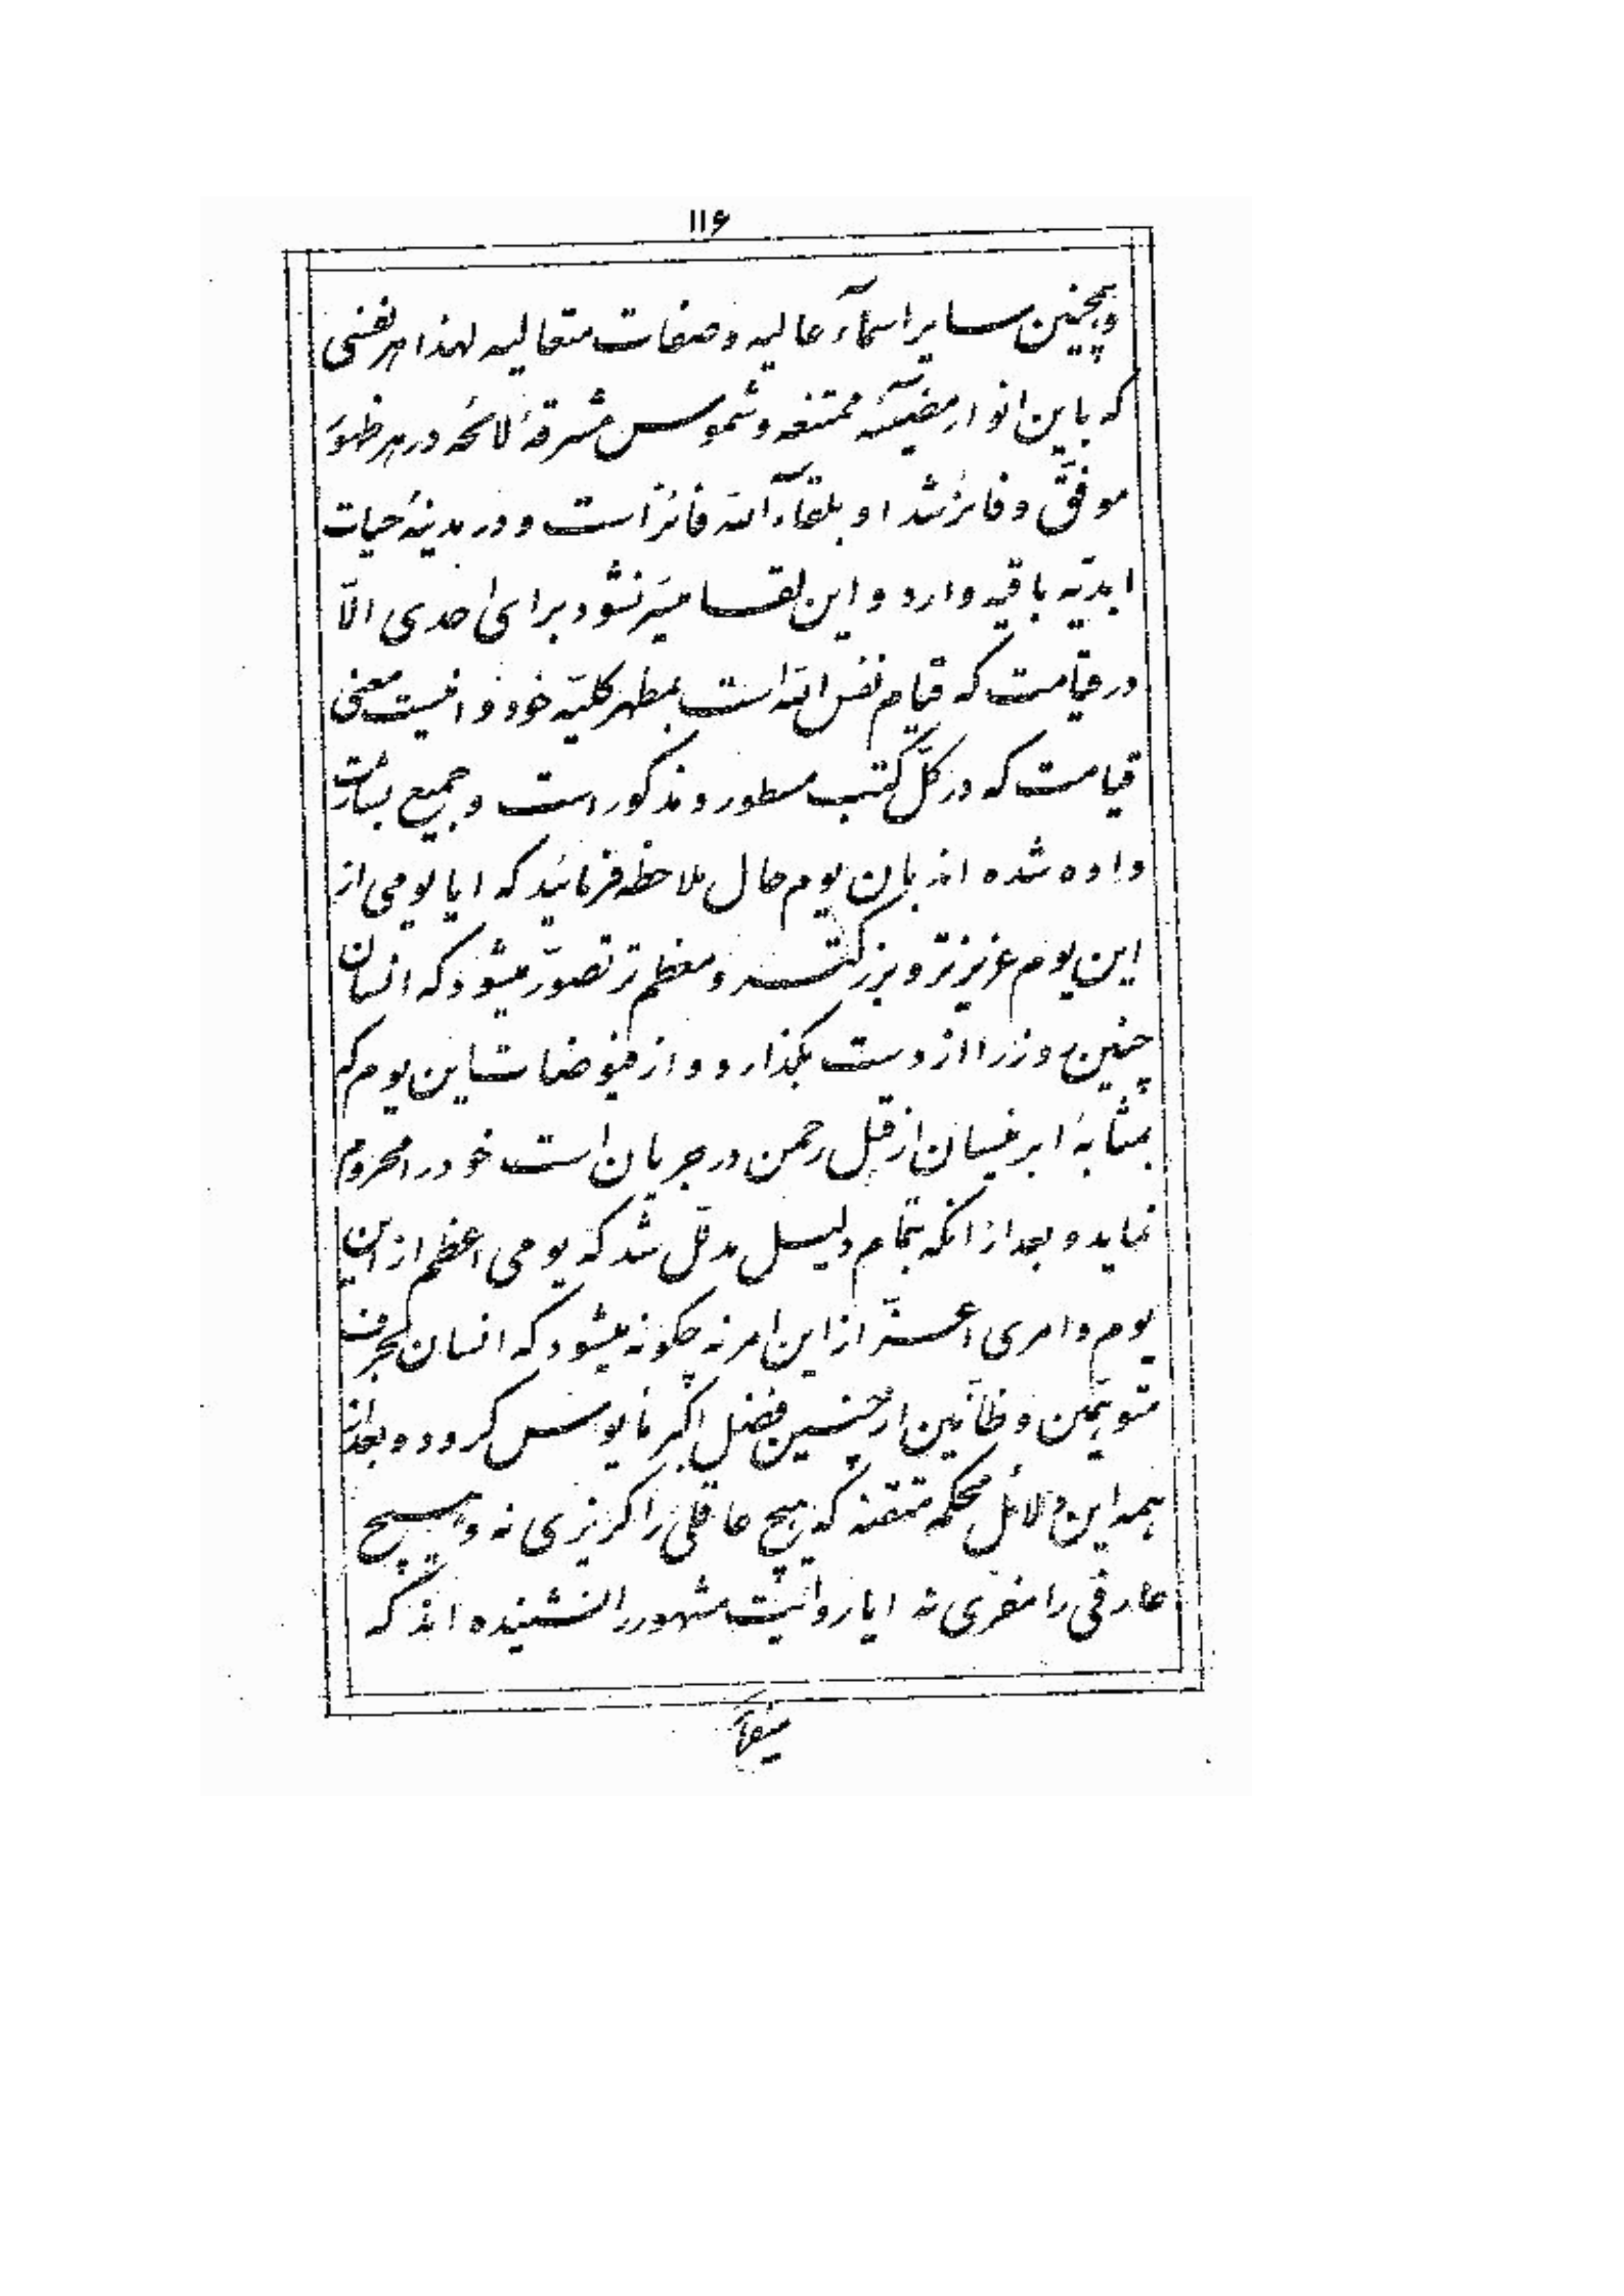 ۱۱۶
و همچنین سایر اسمآء عالیه و صفات متعالیه لهذا هر نفسی
که باین انوار مضیئهٔ ممتنعه و شموس مشرقهٔ لائحه در هر ظهور
موفّق و فائز شد او بلقآء اللّه فائز است و در مدینهٔ حیات
ابدیّه باقیه وارد و این لقا میسّر نشود برای احدی الّا
در قیامت که قیام نفس اللّه است بمظهر کلیّه خود و اینست معنی
قیامت که در کلّ کتب مسطور و مذکور است و جمیع بشارت
داده شده اند بان یوم حال ملاحظه فرمائید که ایا یومی از
این یوم عزیزتر و بزرگتر و معظم تر تصوّر میشود که انسان
چنین روز را از دست بگذارد و از فیوضات این یوم که
بمثابهٔ ابر نیسان از قبل رحمن در جریان است خود را محروم
نماید و بعد از انکه بتمام دلیل مدلّل شد که یومی اعظم از این
یوم و امری اعزّ از این امر نه چگونه میشود که انسان بحرف
متوهّمین و ظانّین از چنین فضل اکبر مایوس گردد و بعد از
همه این دلائل محکمه متقنه که هیچ عاقلی را گریزی نه و هیچ
عارفی را مفرّی نه ایا روایت مشهور را نشنیده اند که